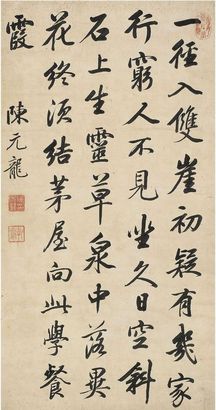 一徑入雙崖初疑有幾家
行窮人不見坐久日空斜
石上生靈草泉中落異
花終須結茅屋向此學餐
霞
陳元龍